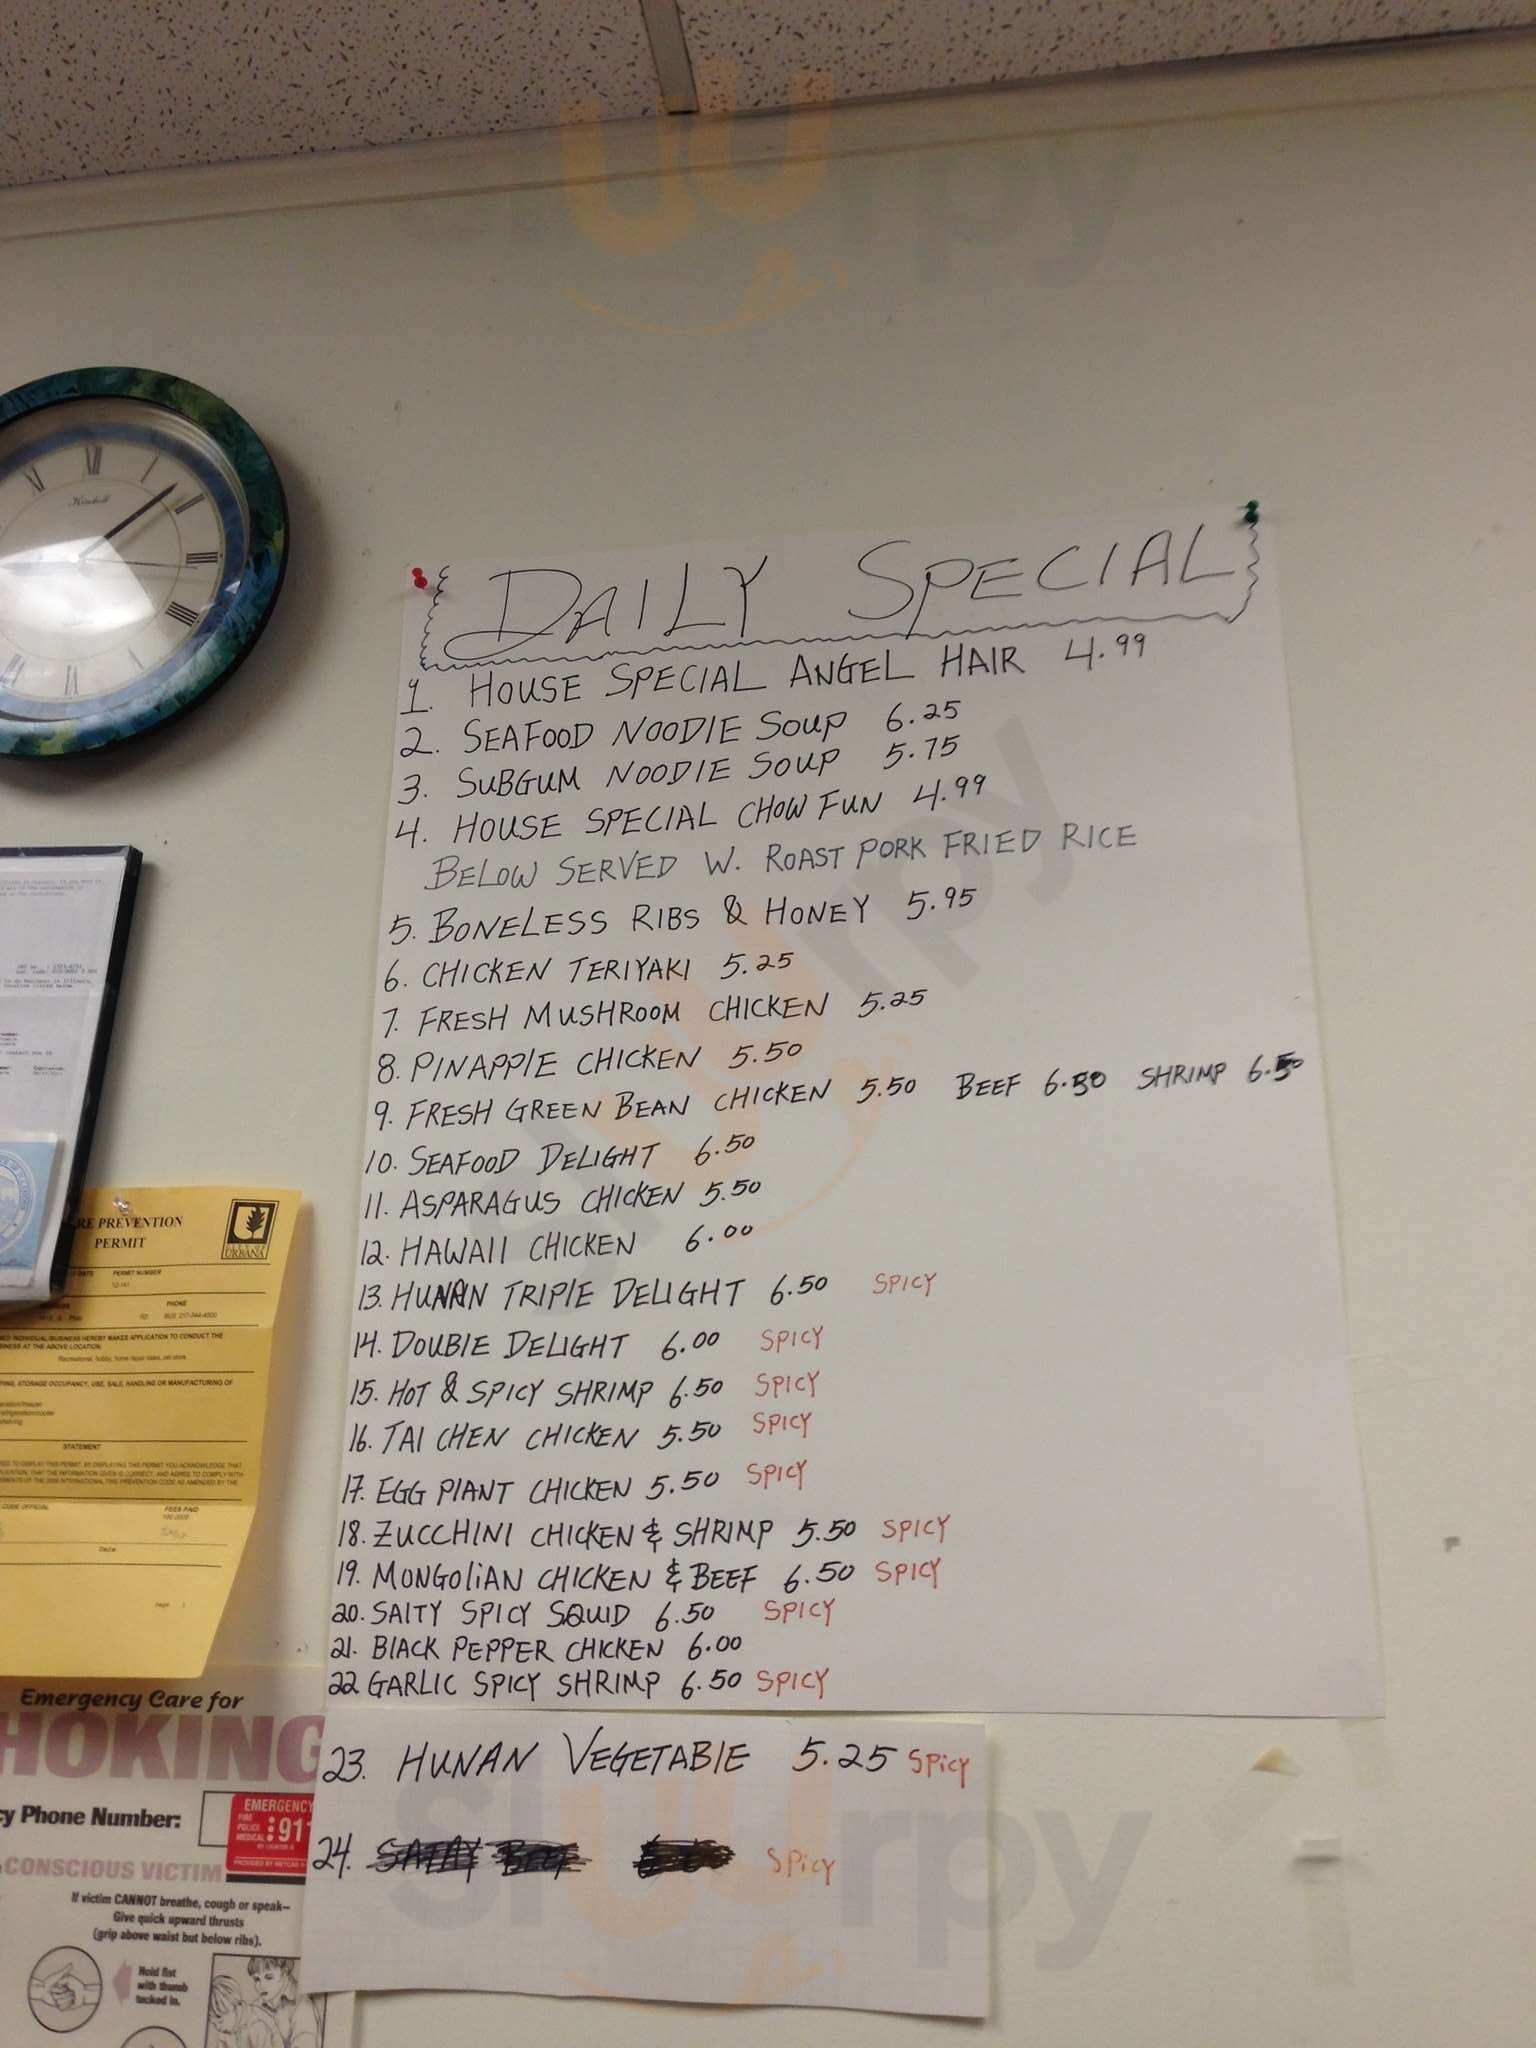 DAILY SPECIAL
1. HOUSE SPECIAL ANGEL HAIR 4.99
2. SEAFOOD NOODlE SOUP 6.25
3. SUBGUM NOODlE SOUP 5.75
4. HOUSE SPECIAL CHOW FUN 4.99
BELOW SERVED W. ROAST PORK FRIED RICE
5. BONELESS RIBS & HONEY 5.95
6. CHICKEN TERIYAKI 5.25
7. FRESH MUSHROOM CHICKEN 5.25
8. PINAPPlE CHICKEN 5.50
9. FRESH GREEN BEAN CHICKEN 5.50 BEEF 6.50 SHRIMP 6.50
10. SEAFOOD DELIGHT 6.50
11. ASPARAGUS CHICKEN 5.50
12. HAWAII CHICKEN 6.00
13. HUNAN TRIPlE DELIGHT 6.50 SPICY
14. DOUBlE DELIGHT 6.00 SPICY
15. HOT & SPICY SHRIMP 6.50 SPICY
16. TAI CHEN CHICKEN 5.50 SPICY
17. EGG PlANT CHICKEN 5.50 SPICY
18. ZUCCHINI CHICKEN & SHRIMP 5.50 SPICY
19. MONGOliAN CHICKEN & BEEF 6.50 SPICY
20. SAlTY SPICY SQUID 6.50 SPICY
21. BlACK PEPPER CHICKEN 6.00
22 GARLIC SPICY SHRIMP 6.50 SPICY
23. HUNAN VEGETABlE 5.25 SPiCY
24. SATAY BEEF SPiCY
Kimball
PREVENTION
PERMIT
URBANA
PERMIT NUMBER
PHONE
BUS 217-344-4500
STATEMENT
CODE OFFICIAL FEES PAID
Date
Page 1
Emergency Care for
HOKING
Phone Number:
EMERGENCY
FIRE
POLICE
MEDICAL
911
CONSCIOUS VICTIM
If victim CANNOT breathe, cough or speak—
Give quick upward thrusts
(grip above waist but below ribs).
Hold fist
with thumb
tucked in.
slurpy
slurpy
slurpy